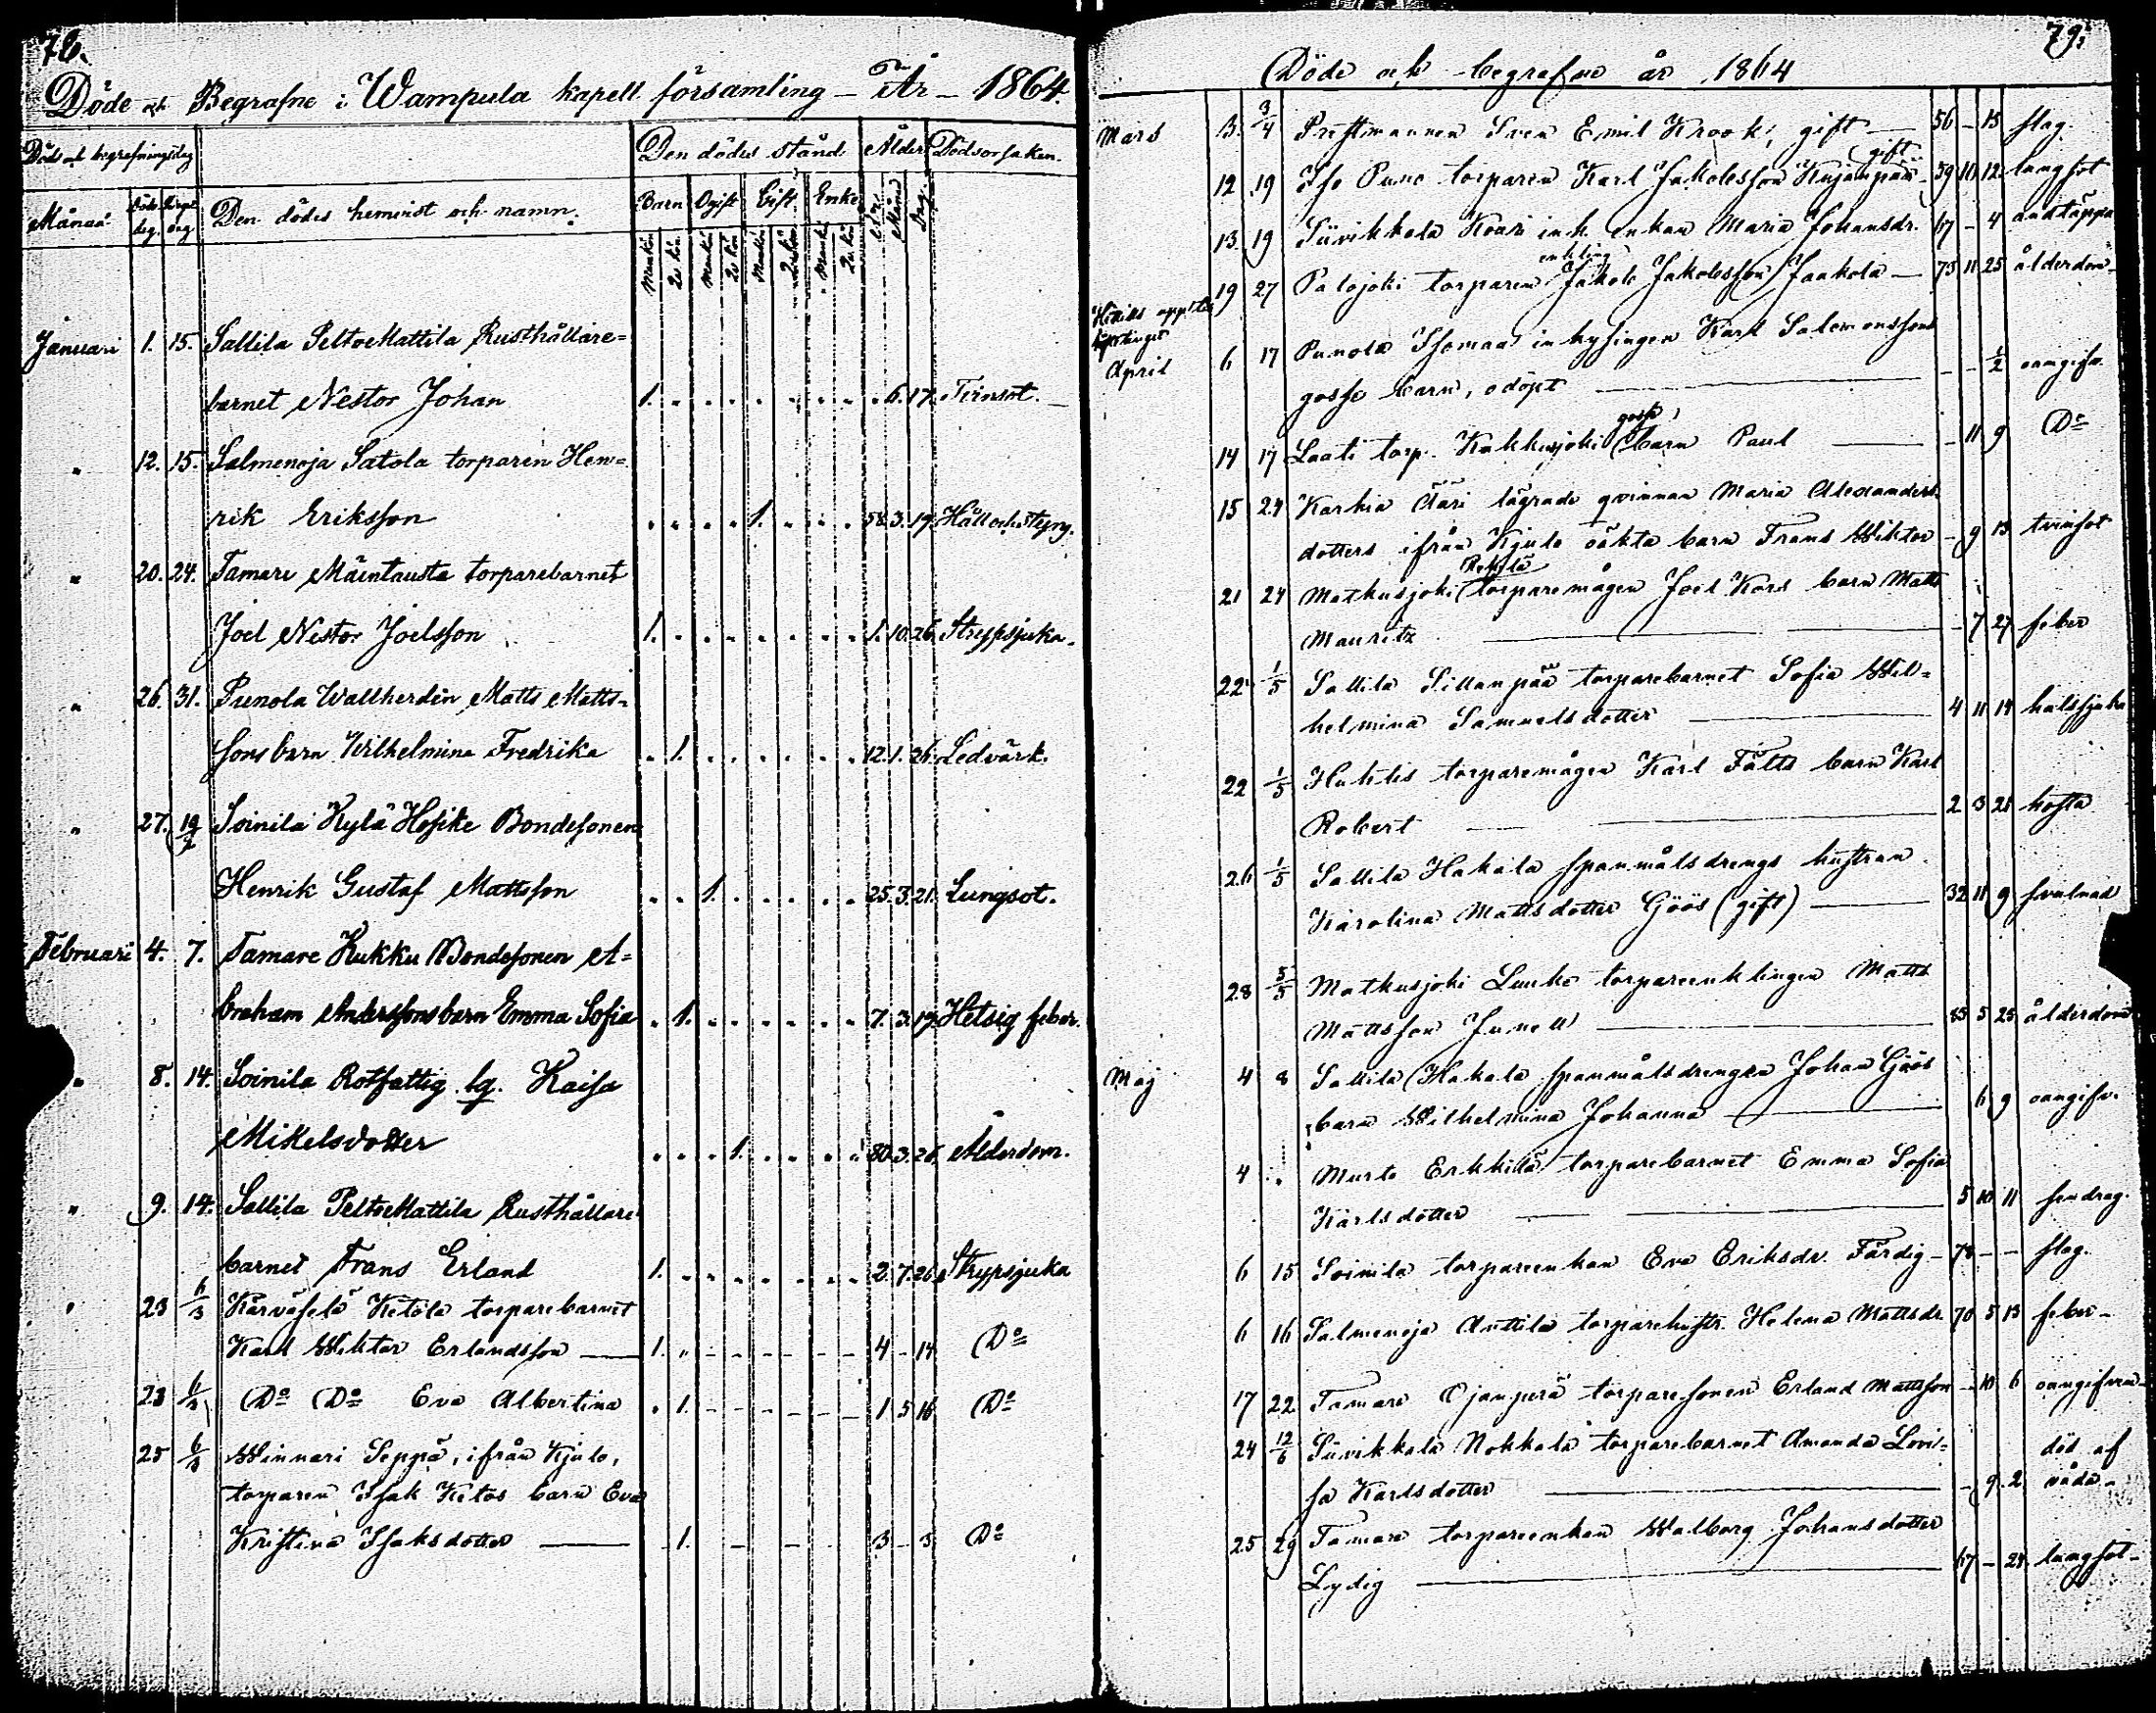 78.
Döde och Begrafne i Wampula kapell församling – År – 1864.
Död och begrafningsdag
Den dödes stånd.
Ålder
Dödsorsaken.
Månad
Döds dag.
Begr. dag
Den dödes hemvist och namn.
Barn
Ogift
Gift
Enke
År.
Månad
Dag.
Mankön
Januari 1. 15. Sallila PeltoMattila Rusthållare=
barnet Nestor Johan 1. 6. 17. Tvinsot.
" 12. 15. Salmenoja Satola torparen Hen=
rik Eriksson 1. 58. 3. 19. Håll och styng.
" 20. 24. Tamare Mäentausta torparebarnet
Joel Nestor Joelsson 1. 1. 10. 26. Strypsjuka.
" 26. 31. Punola Wallherden Matts Matts=
sons barn Wilhelmina Fredrika 1. 12. 1. 26. Ledvärk.
" 27. 19/2 Soinila Kylä Hosike Bondesonen
Henrik Gustaf Mattsson 1. 25. 3. 21. Lungsot.
Februari 4. 7. Tamare Kukku Bondesonen A=
braham Anderssons barn Emma Sofia 1. 7. 3. 19. Hetsig feber.
" 8. 14. Soinila Rotfattig lg. Kaisa
Mikelsdotter 1. 80. 3. 26. Ålderdom.
" 9. 14. Sallila PeltoMattila Rusthållare
barnet Frans Erland 1. 2. 7. 26. Strypsjuka
" 23 6/3 Kärväselä Ketola torparebarnet
Karl Wiktor Erlandsson 1. 4 – 14 Do
23 6/3 Do Do Eva Albertina 1. 1 5 16 Do
25 6/3 Winnari Seppä, ifrån Kjulo,
torparen Isak Ketos barn Eva
Kristina Isaksdotter 1. 3 – 3 Do
79.
Döde och begrafne år 1864
Mars 3. 3/4 Prestmannen Sven Emil Krook, gift 56 – 15 slag.
gift
12 19 Iso Puno torparen Karl Jakobsson Kujanpää 59 10 12 lungsot
13 19 Siivikkala Koari inh. enkan Maria Johansdr. 67 – 4 andtäppa
enkling
19 27 Palojoki torparen Jakob Jakobsson Jaakola – 75 11 25 ålderdom
April 6 17 Punola Isomaa inhysingen Karl Salomonssons
gosse barn, odöpt – – 1/2 oangifv.
gosse
14 17 Laati torp. Kukkusjoki barn Paul – 11 9 Do
15 24 Karhia Ääri lägrade qvinnan Maria Alexanders
dotters ifrån Kjulo oäkta barn Frans Wiktor – 9 13 tvinsot
21 24 Matkusjoki torparemågen Joel Kors barn Matts
Mauritz – 7 27 feber
22 1/5 Sallila Sillanpää torparebarnet Sofia Wil=
helmina Samuelsdotter 4 11 14 halssjuka
22 1/5 Huhtis torparemågen Karl Fälts barn Karl
Robert 2 3 21 hosta
26 1/5 Sallila Hakala spanmålsdrengs hustrun
Karolina Mattsdotter Göös (gift) 32 11 9 svulnad
28 5/5 Matkusjoki Luuko torpareenklingen Matts
Mattsson Junell 85 5 25 ålderdom
Maj 4 8 Sallila Hakala spanmålsdrengen Johan Göös
barn Wilhelmina Johanna 6 9 oangifv.
4 " Murto Erkkilä torparebarnet Emma Sofia
Karlsdotter 5 10 11 sendrag.
6 15 Soinila torpareenkan Eva Eriksdr. Färdig – 78 – – slag.
6 16 Salmenoja Anttila torparehustr. Helena Mattsdr. 70 5 13 feber –
17 22 Tamare Ojanperä torparesonen Erland Mattsson – 10 6 oangifven
24 12/6 Siivikkala Nokkala torparebarnet Amanda Lovi=
sa Karlsdotter – 9 2 död af våda –
25 29 Tamare torpareenkan Walborg Johansdotter
Lydig 67 – 24 lungsot –